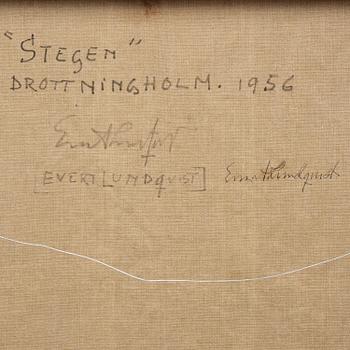 "STEGEN"
DROTTNINGHOLM. 1956
Evert Lundquist
[EVERT LUNDQUIST] Evert Lundquist